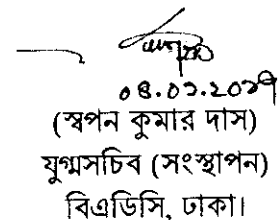 ০৪.০১.২০১৭
(স্বপন কুমার দাস)
যুগ্মসচিব (সংস্থাপন)
বিএডিসি, ঢাকা।